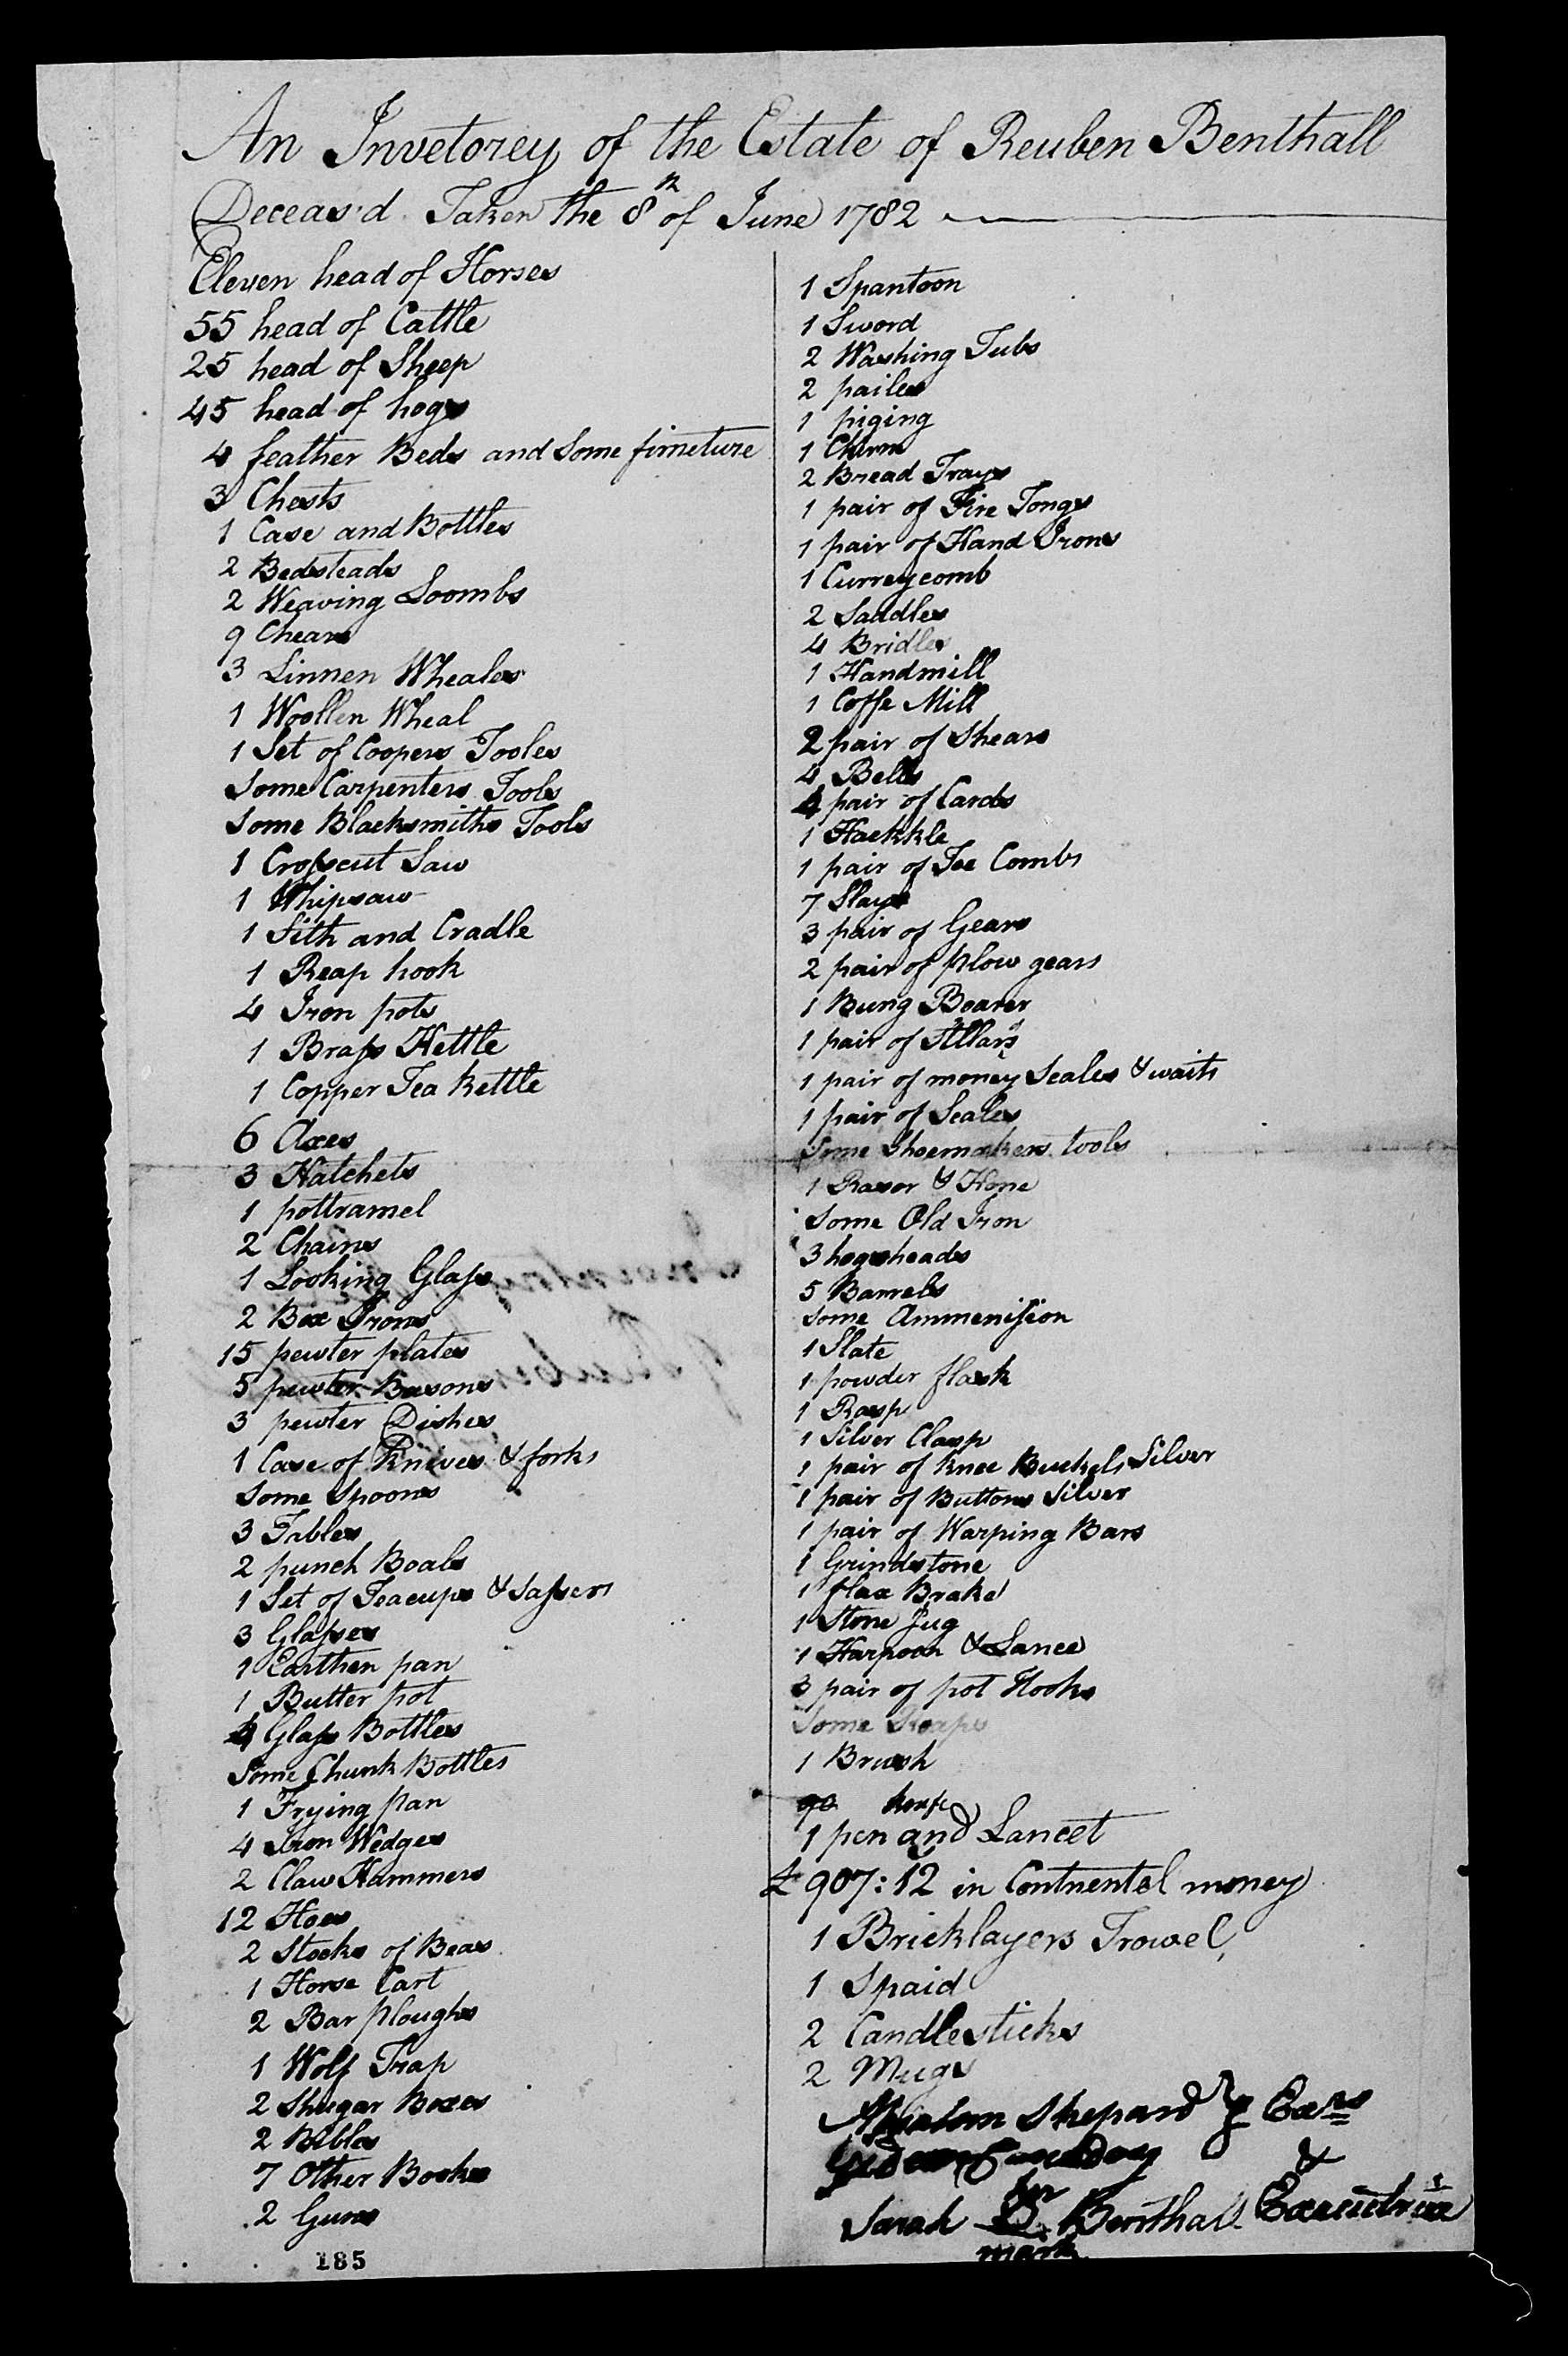 An Invetorey of the Estate of Reuben Benthall
Deceas'd Taken the 8th of June 1782
Eleven head of Horses
55 head of Cattle
25 head of Sheep
45 head of hogs
4 feather Beds and Some firneture
3 Chests
1 Case and Bottles
2 Bedsteads
2 Weaving Loombs
9 Chears
3 Linnen Wheales
1 Woollen Wheal
1 Set of Coopers Tooles
Some Carpenters Tools
Some Blacksmiths Tools
1 Crosscut Saw
1 Whipsaw
1 Sith and Cradle
1 Reap hook
4 Iron pots
1 Brass Kettle
1 Copper Tea kettle
6 Axes
3 Hatchets
1 pottramel
2 Chains
1 Looking Glass
2 Box Irons
15 pewter plates
5 pewter Basons
3 pewter Dishes
1 Case of Knives & forks
Some Spoons
3 Tables
2 punch Boals
1 Set of Teacups & Sassers
3 Glasses
1 Earthen pan
1 Butter pot
4 Glass Bottles
Some Chunk Bottles
1 Frying pan
4 Iron Wedges
2 Claw Hammers
12 Hoes
2 Stocks of Beas
1 Horse Cart
2 Bar Ploughs
1 Wolf Trap
2 Shugar Boxes
2 Bibles
7 Other Books
2 Guns
185
1 Spantoon
1 Sword
2 Washing Tubs
2 pailes
1 piging
1 Churn
2 Bread Trays
1 pair of Fire Tongs
1 pair of Hand Irons
1 Curreycomb
2 Saddles
4 Bridles
1 Handmill
1 Coffe Mill
2 pair of Shears
4 Bells
4 pair of Cards
1 Hackkle
1 pair of Toe Combs
7 Slays
3 pair of Gears
2 pair of plow gears
1 Bung Boarer
1 pair of
1 pair of money Scales & waits
1 pair of Scales
Some Shoemakers tools
1 Rasor & Hone
Some Old Iron
3 hogsheads
5 Barrels
Some Ammenission
1 Slate
1 powder flask
1 Rasp
1 Silver Clasp
1 pair of knee Buckels Silver
1 pair of Buttons Silver
1 pair of Warping Bars
1 Grindstone
1 flax Brake
1 Stone Jug
1 Harpoon & Lance
3 pair of pot Hooks
Some
1 Brush
1 pen and Lancet
£907:12 in Contnental money
1 Bricklayers Trowel,
1 Spaid
2 Candlesticks
2 Mugs
Shepard Exrs
&
Sarah Benthall Executrix
mark